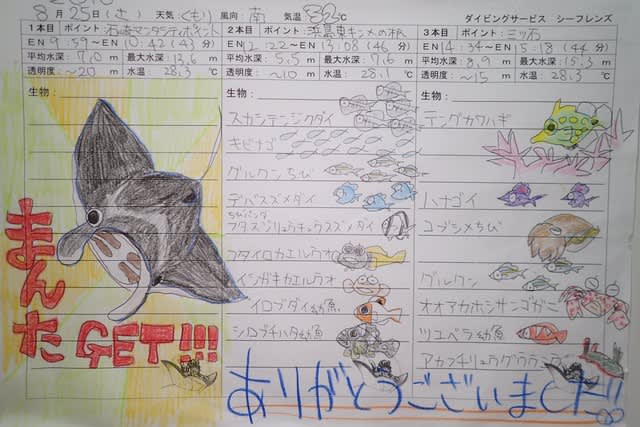 8月25日(土) 天気:くもり 風向:南 気温:32℃ ダイビングサービス シーフレンズ
1本目 ポイント 石崎マンタシティポイント
EN 9:59～EN10:42 (43分)
平均水深 7.0 m 最大水深 13.6 m
透明度:～20 m 水温:28.3℃
生物:
まんた GET!!!
2本目 ポイント 浜島東キンメの根
EN12:22～EN13:08 (46分)
平均水深 5.5 m 最大水深 7.6 m
透明度:～10 m 水温:28.1℃
生物:
スカシテンジクダイ
キビナゴ
グルクンちび
デバスズメダイ
ちびパンダ
フタスジリュウキュウスズメダイ
コタイロカエルウオ
イシガキカエルウオ
イロブダイ幼魚
シロブチハタ幼魚
3本目 ポイント 三ツ石
EN14:34～EN15:18 (44分)
平均水深 8.9 m 最大水深 15.3 m
透明度:～15 m 水温:28.3℃
生物:
テングカワハギ
ハナゴイ
コブシメちび
グルクン
オオアカホシサンゴガニ
ツユベラ幼魚
アカフチリュウグウウミウシ
ありがとうございました!!